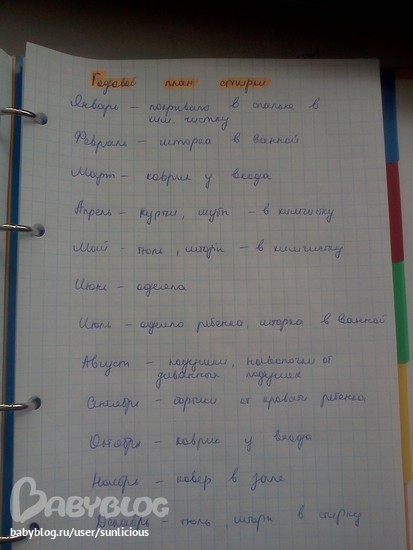 Годовой план стирки
Январь - покрывало в спальне в
хим. чистку
Февраль - шторка в ванной
Март - коврик у входа
Апрель - куртки, шубы - в химчистку
Май - тюль, шторы - в химчистку
Июнь - одеяла
Июль - одеяло ребенка, шторка в ванной
Август - подушки, наволочки от
диванных подушек
Сентябрь - бортики от кровати ребенка
Октябрь - коврик у входа
Ноябрь - ковер в зале
Декабрь - тюль, шторы в стирку
BABYBLOG
babyblog.ru/user/sunlicious